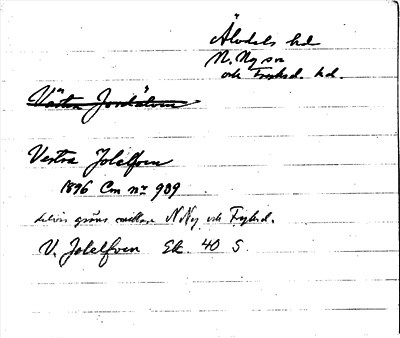 Älvdals hd
N. Ny sn
och Fryksd. hd.
Västra Jordälven
Vestra Jolelfven
1896 Cm nr 909
delvis gräns mellan N Ny och Fryksd.
V. Jolelfven Ek. 40 S.